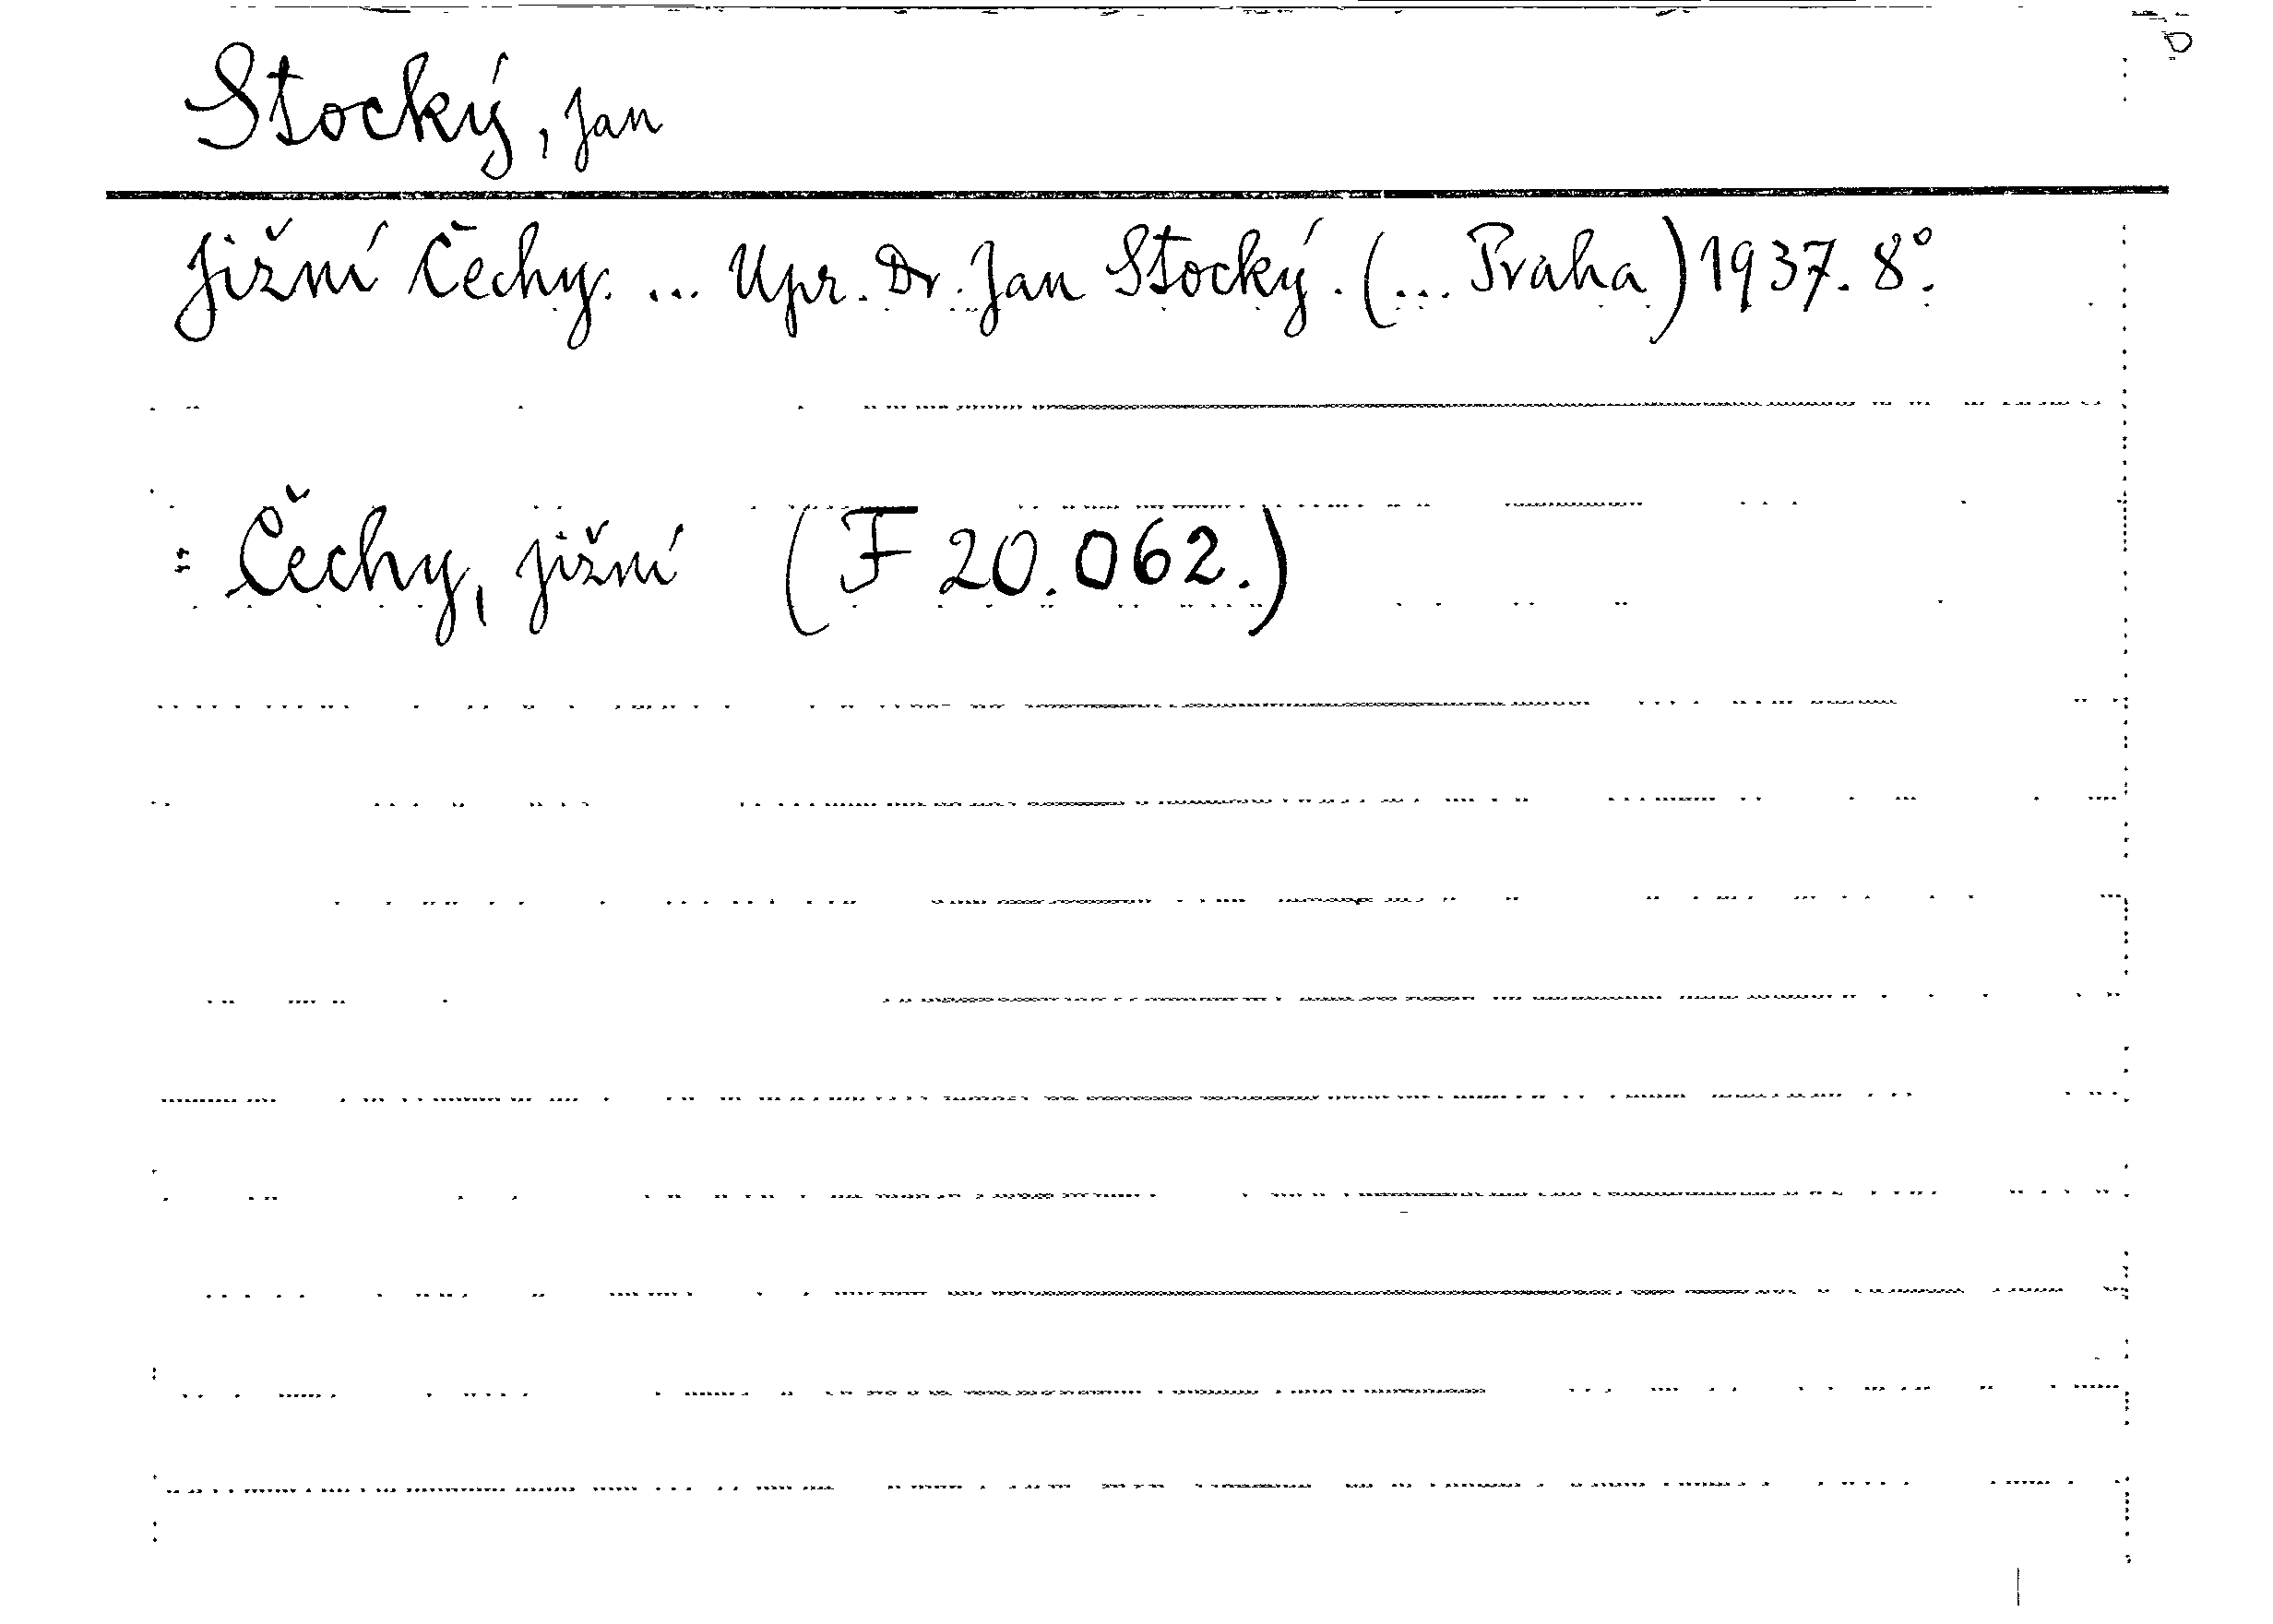 Stocký, Jan
Jižní Čechy. ... Upr. Dr. Jan Stocký. (... Praha) 1937. 8°.
: Čechy, jižní (F 20.062.)